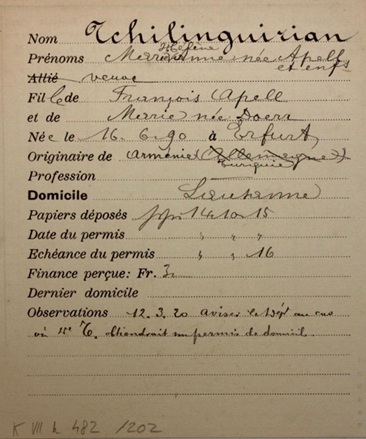 Nom Tchilinguirian
Hélène
Prénoms Marianne née Apell
et enfs
Allié veuve
Fille de François Apell
et de Marrie née Doerr
Née le 16.6.90 à Erfurt
Originaire de Arménie (Allemagne)
Turquie
Profession
Domicile Lausanne
Papiers déposés 14 10 15
Date du permis " " "
Echéance du permis " " 16
Finance perçue: Fr. 3.
Dernier domicile
Observations 12.3.20 aviser le au cas
où T. obtiendrait un permis de domicil.
K VII b 482 /202